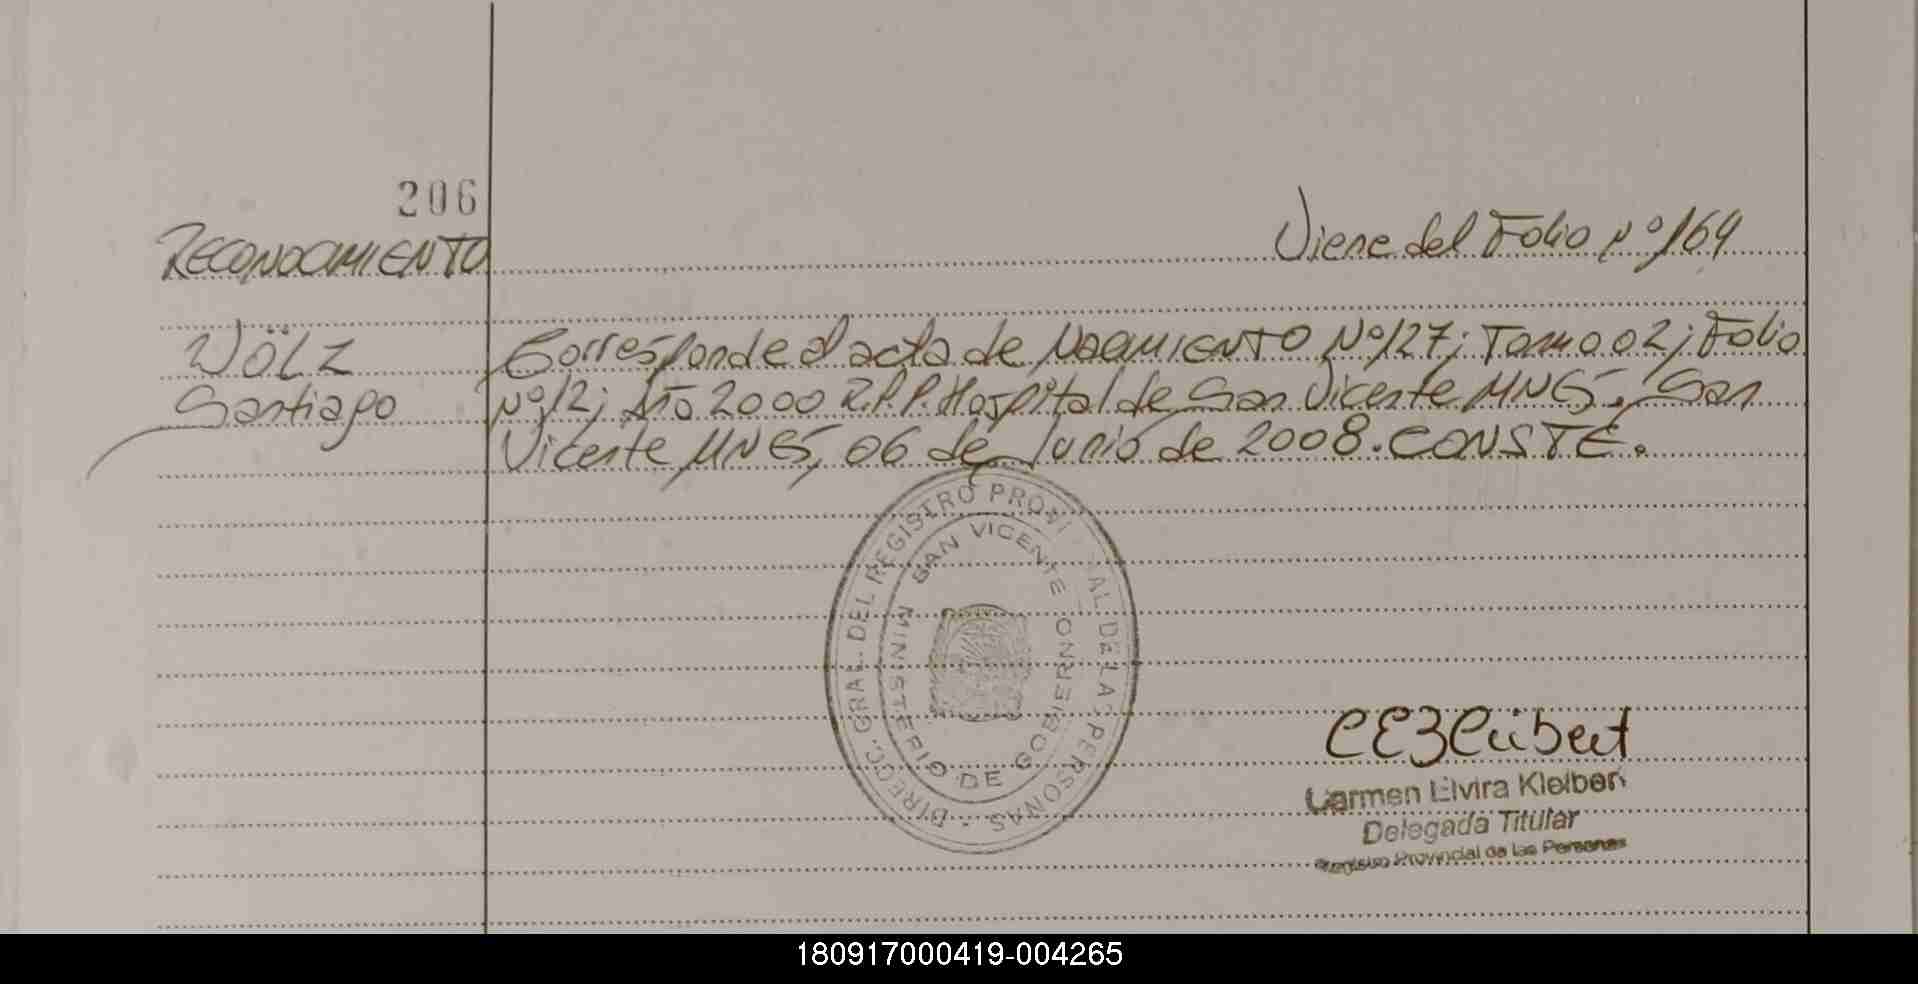 206
RECONOCIMIENTO
Viene del Folio Nº 164
WÖLZ
Santiago
Corresponde al acta de NACIMIENTO Nº 127; Tomo 02; Folio
Nº 12; Año 2000 R.P.P. Hospital de San Vicente MNES. San
Vicente MNES, 06 de Junio de 2008. CONSTE.
DIRECC. GRAL. DEL REGISTRO PROVI AL DE LAS PERSONAS -
SAN VICENTE
MINISTERIO DE GOBIERNO
Carmen Elvira Kleibert
Delegada Titular
Registro Provincial de las Personas
180917000419-004265